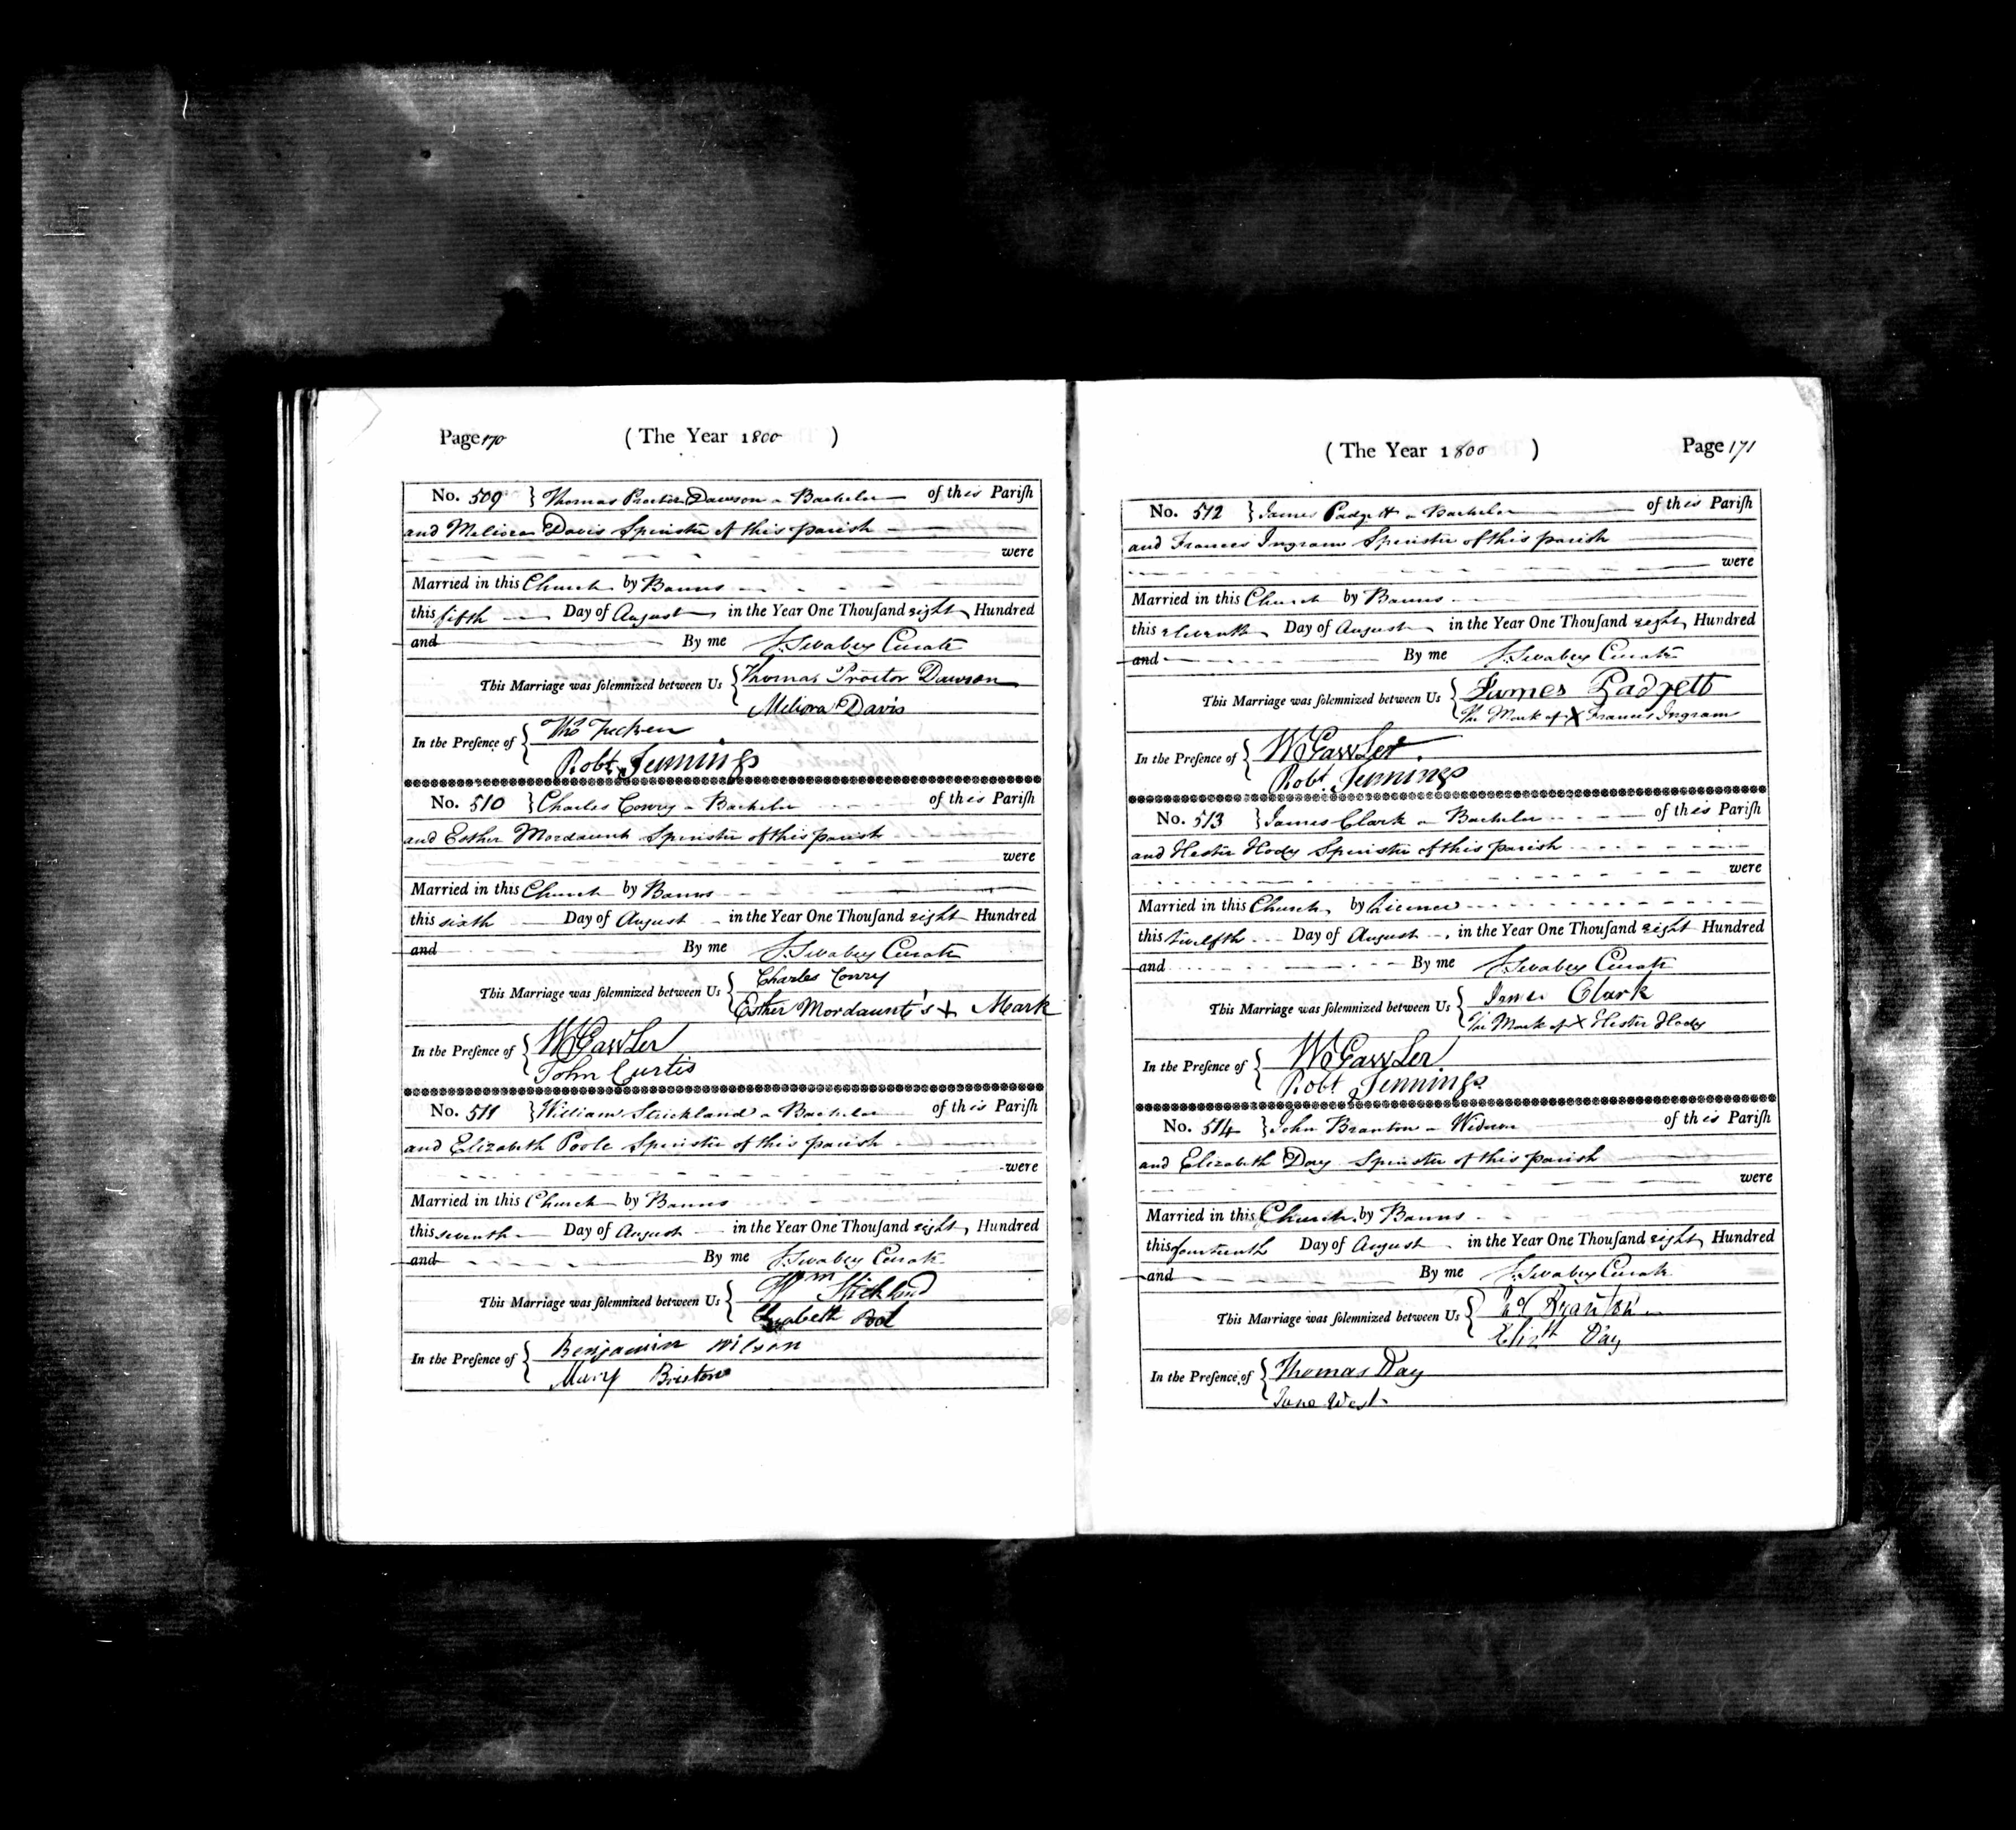 Page 170 (The Year 1800)
No. 509 } Thomas Proctor Dawson a Bachelor of this Pariſh
and Meliora Davis Spinster of this parish
were
Married in this Church by Banns
this fifth Day of August in the Year One Thouſand eight Hundred
and By me J. Swabey Curate
This Marriage was ſolemnized between Us { Thomas Proctor Dawson
Meliora Davis
In the Preſence of {
Robt Jennings
No. 510 } Charles Conry a Bachelor of this Pariſh
and Esther Mordaunt Spinster of this parish
were
Married in this Church by Banns
this sixth Day of August in the Year One Thouſand eight Hundred
and By me J. Swabey Curate
This Marriage was ſolemnized between Us { Charles Conry
Esther Mordaunt's X Mark
In the Preſence of { W Gawler
John Curtis
No. 511 } William Strickland a Bachelor of this Pariſh
and Elizabeth Poole Spinster of this parish
were
Married in this Church by Banns
this seventh Day of August in the Year One Thouſand eight Hundred
and By me J. Swabey Curate
This Marriage was ſolemnized between Us { Wm Stickland
Elizabeth Pool
In the Preſence of { Benjamin Wilson
Mary Bristow
(The Year 1800) Page 171
No. 512 } James Padgett a Bachelor of this Pariſh
and Frances Ingram Spinster of this parish
were
Married in this Church by Banns
this eleventh Day of August in the Year One Thouſand eight Hundred
and By me J. Swabey Curate
This Marriage was ſolemnized between Us { James Padgett
The Mark of X Frances Ingram
In the Preſence of { W Gawler
Robt. Jennings
No. 513 } James Clark a Bachelor of this Pariſh
and Hester Hody Spinster of this parish
were
Married in this Church by Licence
this twelfth Day of August in the Year One Thouſand eight Hundred
and By me J. Swabey Curate
This Marriage was ſolemnized between Us { James Clark
The Mark of X Hester Hody
In the Preſence of { W Gawler
Robt Jennings
No. 514 } John Branton a Widower of this Pariſh
and Elizabeth Day Spinster of this parish
were
Married in this Church by Banns
this fourteenth Day of August in the Year One Thouſand eight Hundred
and By me J. Swabey Curate
This Marriage was ſolemnized between Us { Jno Branton
Elizth Day
In the Preſence of { Thomas Day
Jane West